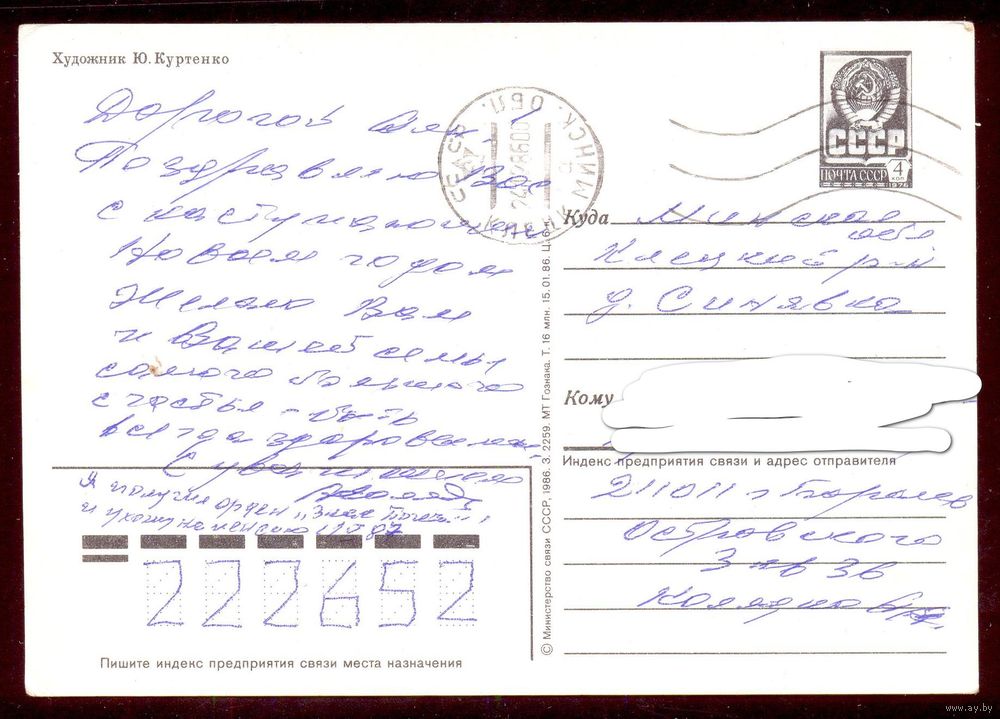 Художник Ю. Куртенко
Дорогой
Поздравляю Вас
с наступающим
Новым годом
Желаю Вам
и Вашей семьи
самого большого
счастья - быть
всегда здоровыми
С уважением
Я получил орден „Знак Почета"
и ухожу на пенсию
222652
Пишите индекс предприятия связи места назначения
© Министерство связи СССР, 1986. З. 2259. МТ Гознака. Т. 16 млн. 15.01.86. Ц.
СССР
ПОЧТА СССР
4 коп
1976
СССР МИНСК. ОБЛ.
Куда Минская
обл
Клецкий р-н
д. Синявка
Кому
Индекс предприятия связи и адрес отправителя
211011 г
Островского
3 кв 36
www.ay.by